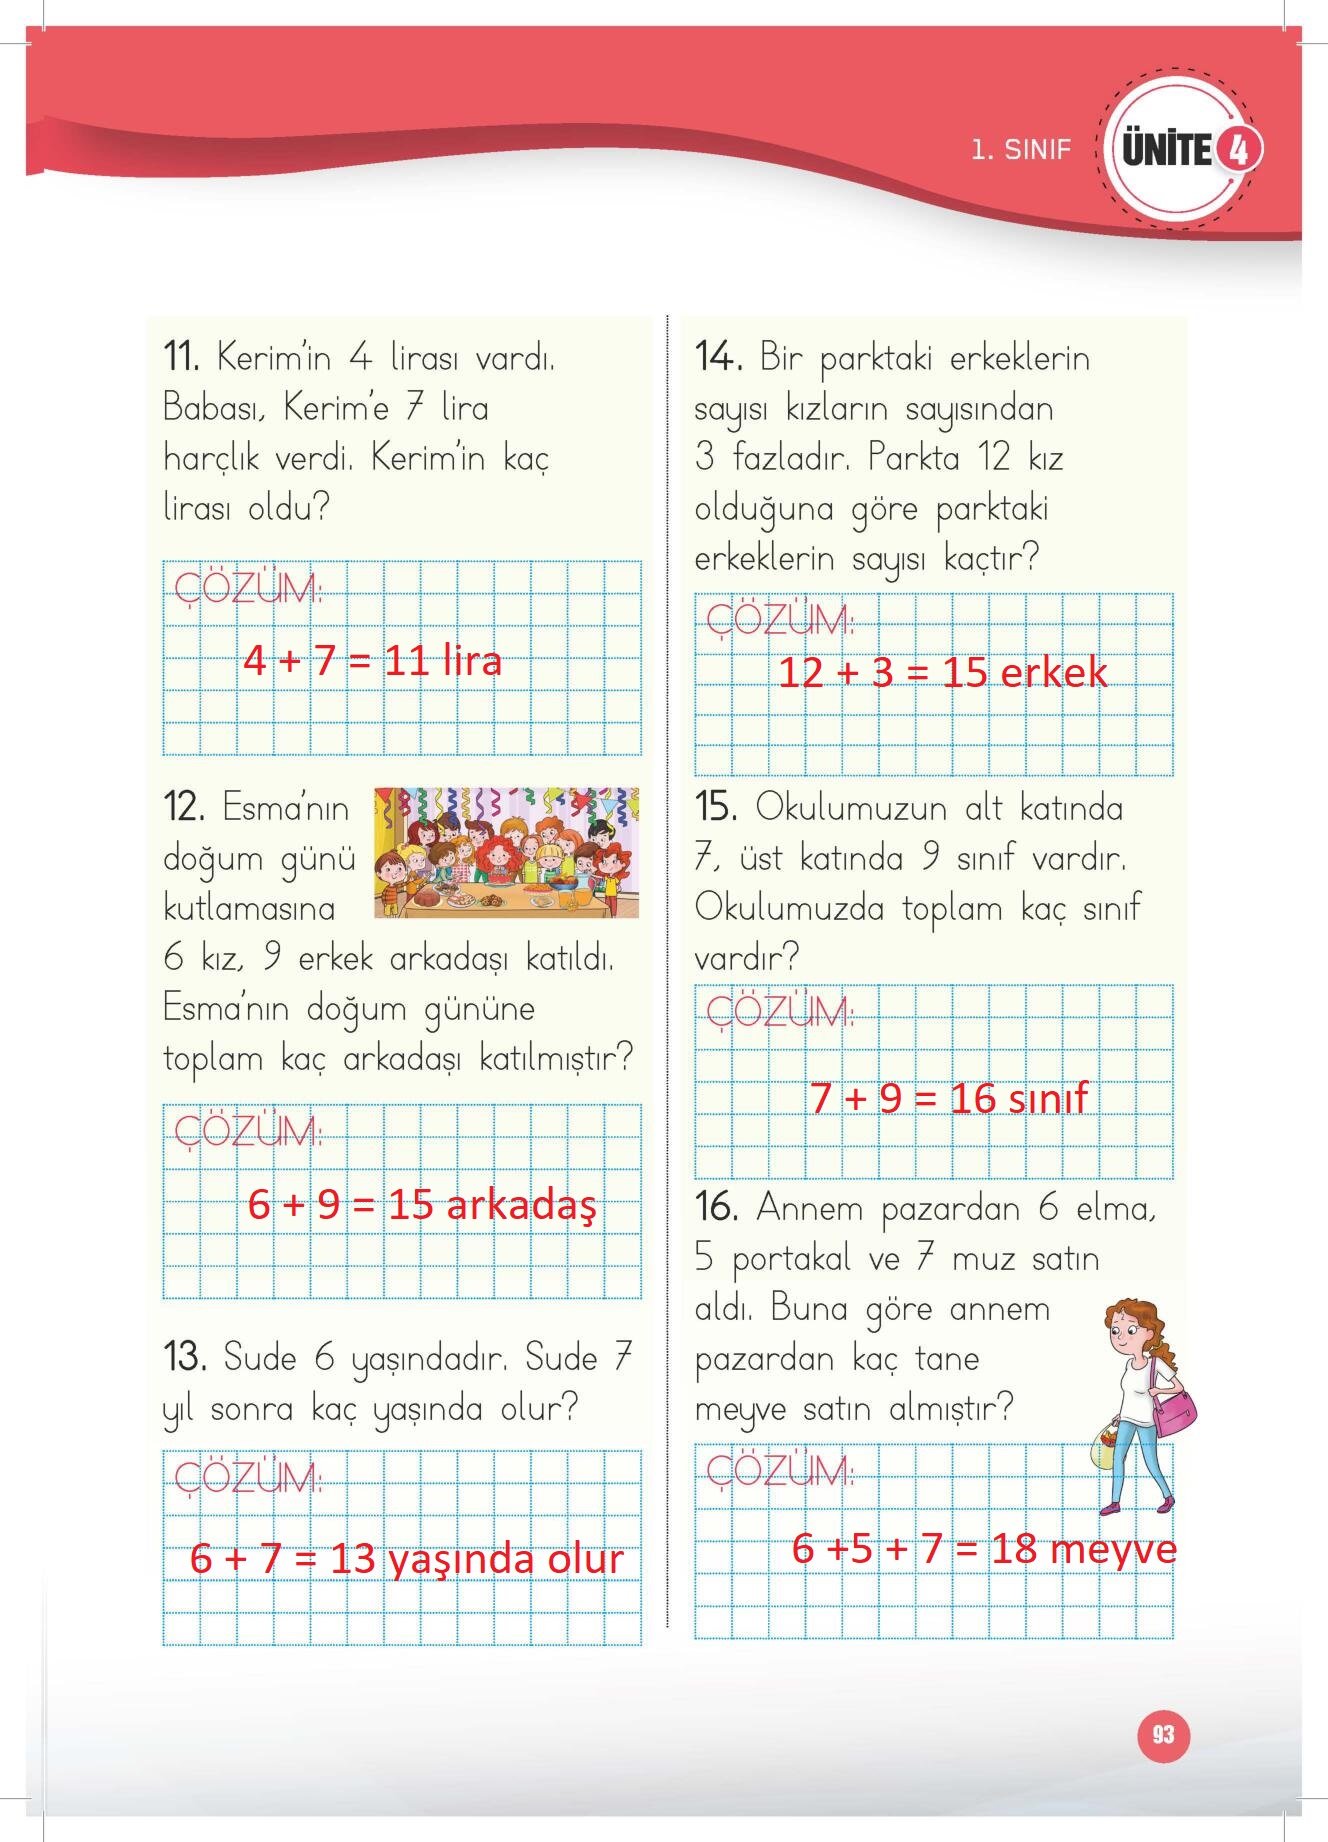 1. SINIF
ÜNİTE 4
11. Kerim'in 4 lirası vardı.
Babası, Kerim'e 7 lira
harçlık verdi. Kerim'in kaç
lirası oldu?
ÇÖZÜM:
4 + 7 = 11 lira
12. Esma'nın
doğum günü
kutlamasına
6 kız, 9 erkek arkadaşı katıldı.
Esma'nın doğum gününe
toplam kaç arkadaşı katılmıştır?
ÇÖZÜM:
6 + 9 = 15 arkadaş
13. Sude 6 yaşındadır. Sude 7
yıl sonra kaç yaşında olur?
ÇÖZÜM:
6 + 7 = 13 yaşında olur
14. Bir parktaki erkeklerin
sayısı kızların sayısından
3 fazladır. Parkta 12 kız
olduğuna göre parktaki
erkeklerin sayısı kaçtır?
ÇÖZÜM:
12 + 3 = 15 erkek
15. Okulumuzun alt katında
7, üst katında 9 sınıf vardır.
Okulumuzda toplam kaç sınıf
vardır?
ÇÖZÜM:
7 + 9 = 16 sınıf
16. Annem pazardan 6 elma,
5 portakal ve 7 muz satın
aldı. Buna göre annem
pazardan kaç tane
meyve satın almıştır?
ÇÖZÜM:
6 +5 + 7 = 18 meyve
93